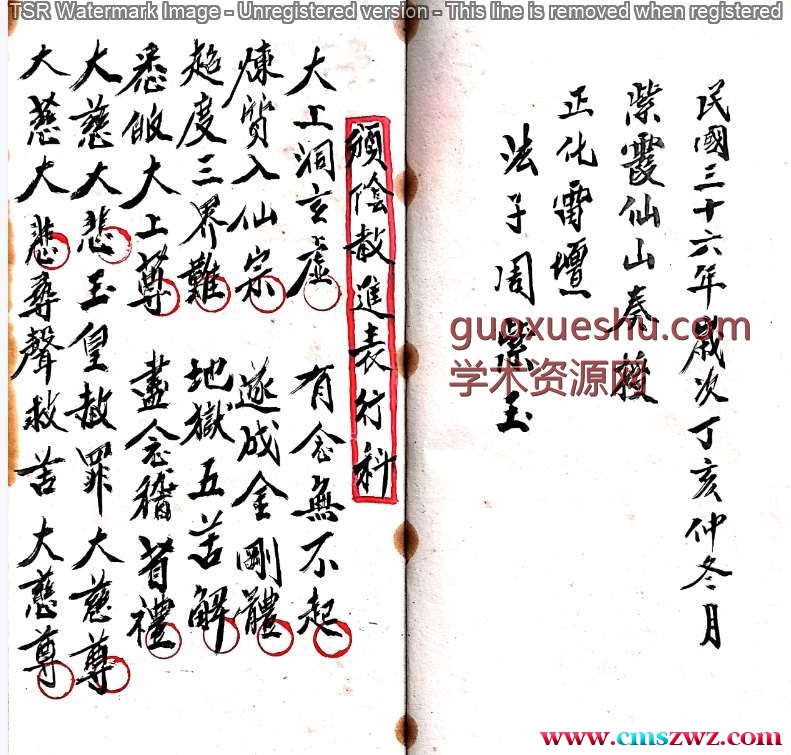 TSR Watermark Image - Unregistered version - This line is removed when registered
民國三十六年歲次丁亥仲冬月
紫霞仙山奏授
正化雷壇
法子周紫玉
頒陰赦進表行科
太上洞玄虛 有念無不起
煉質入仙宗 遂成金剛體
超度三界難 地獄五苦解
悉皈太上尊 盡念稽首禮
大慈大悲玉皇赦罪大慈尊
大慈大悲尋聲救苦大慈尊
guoxueshu.com
学术资源网
www.cmszwz.com